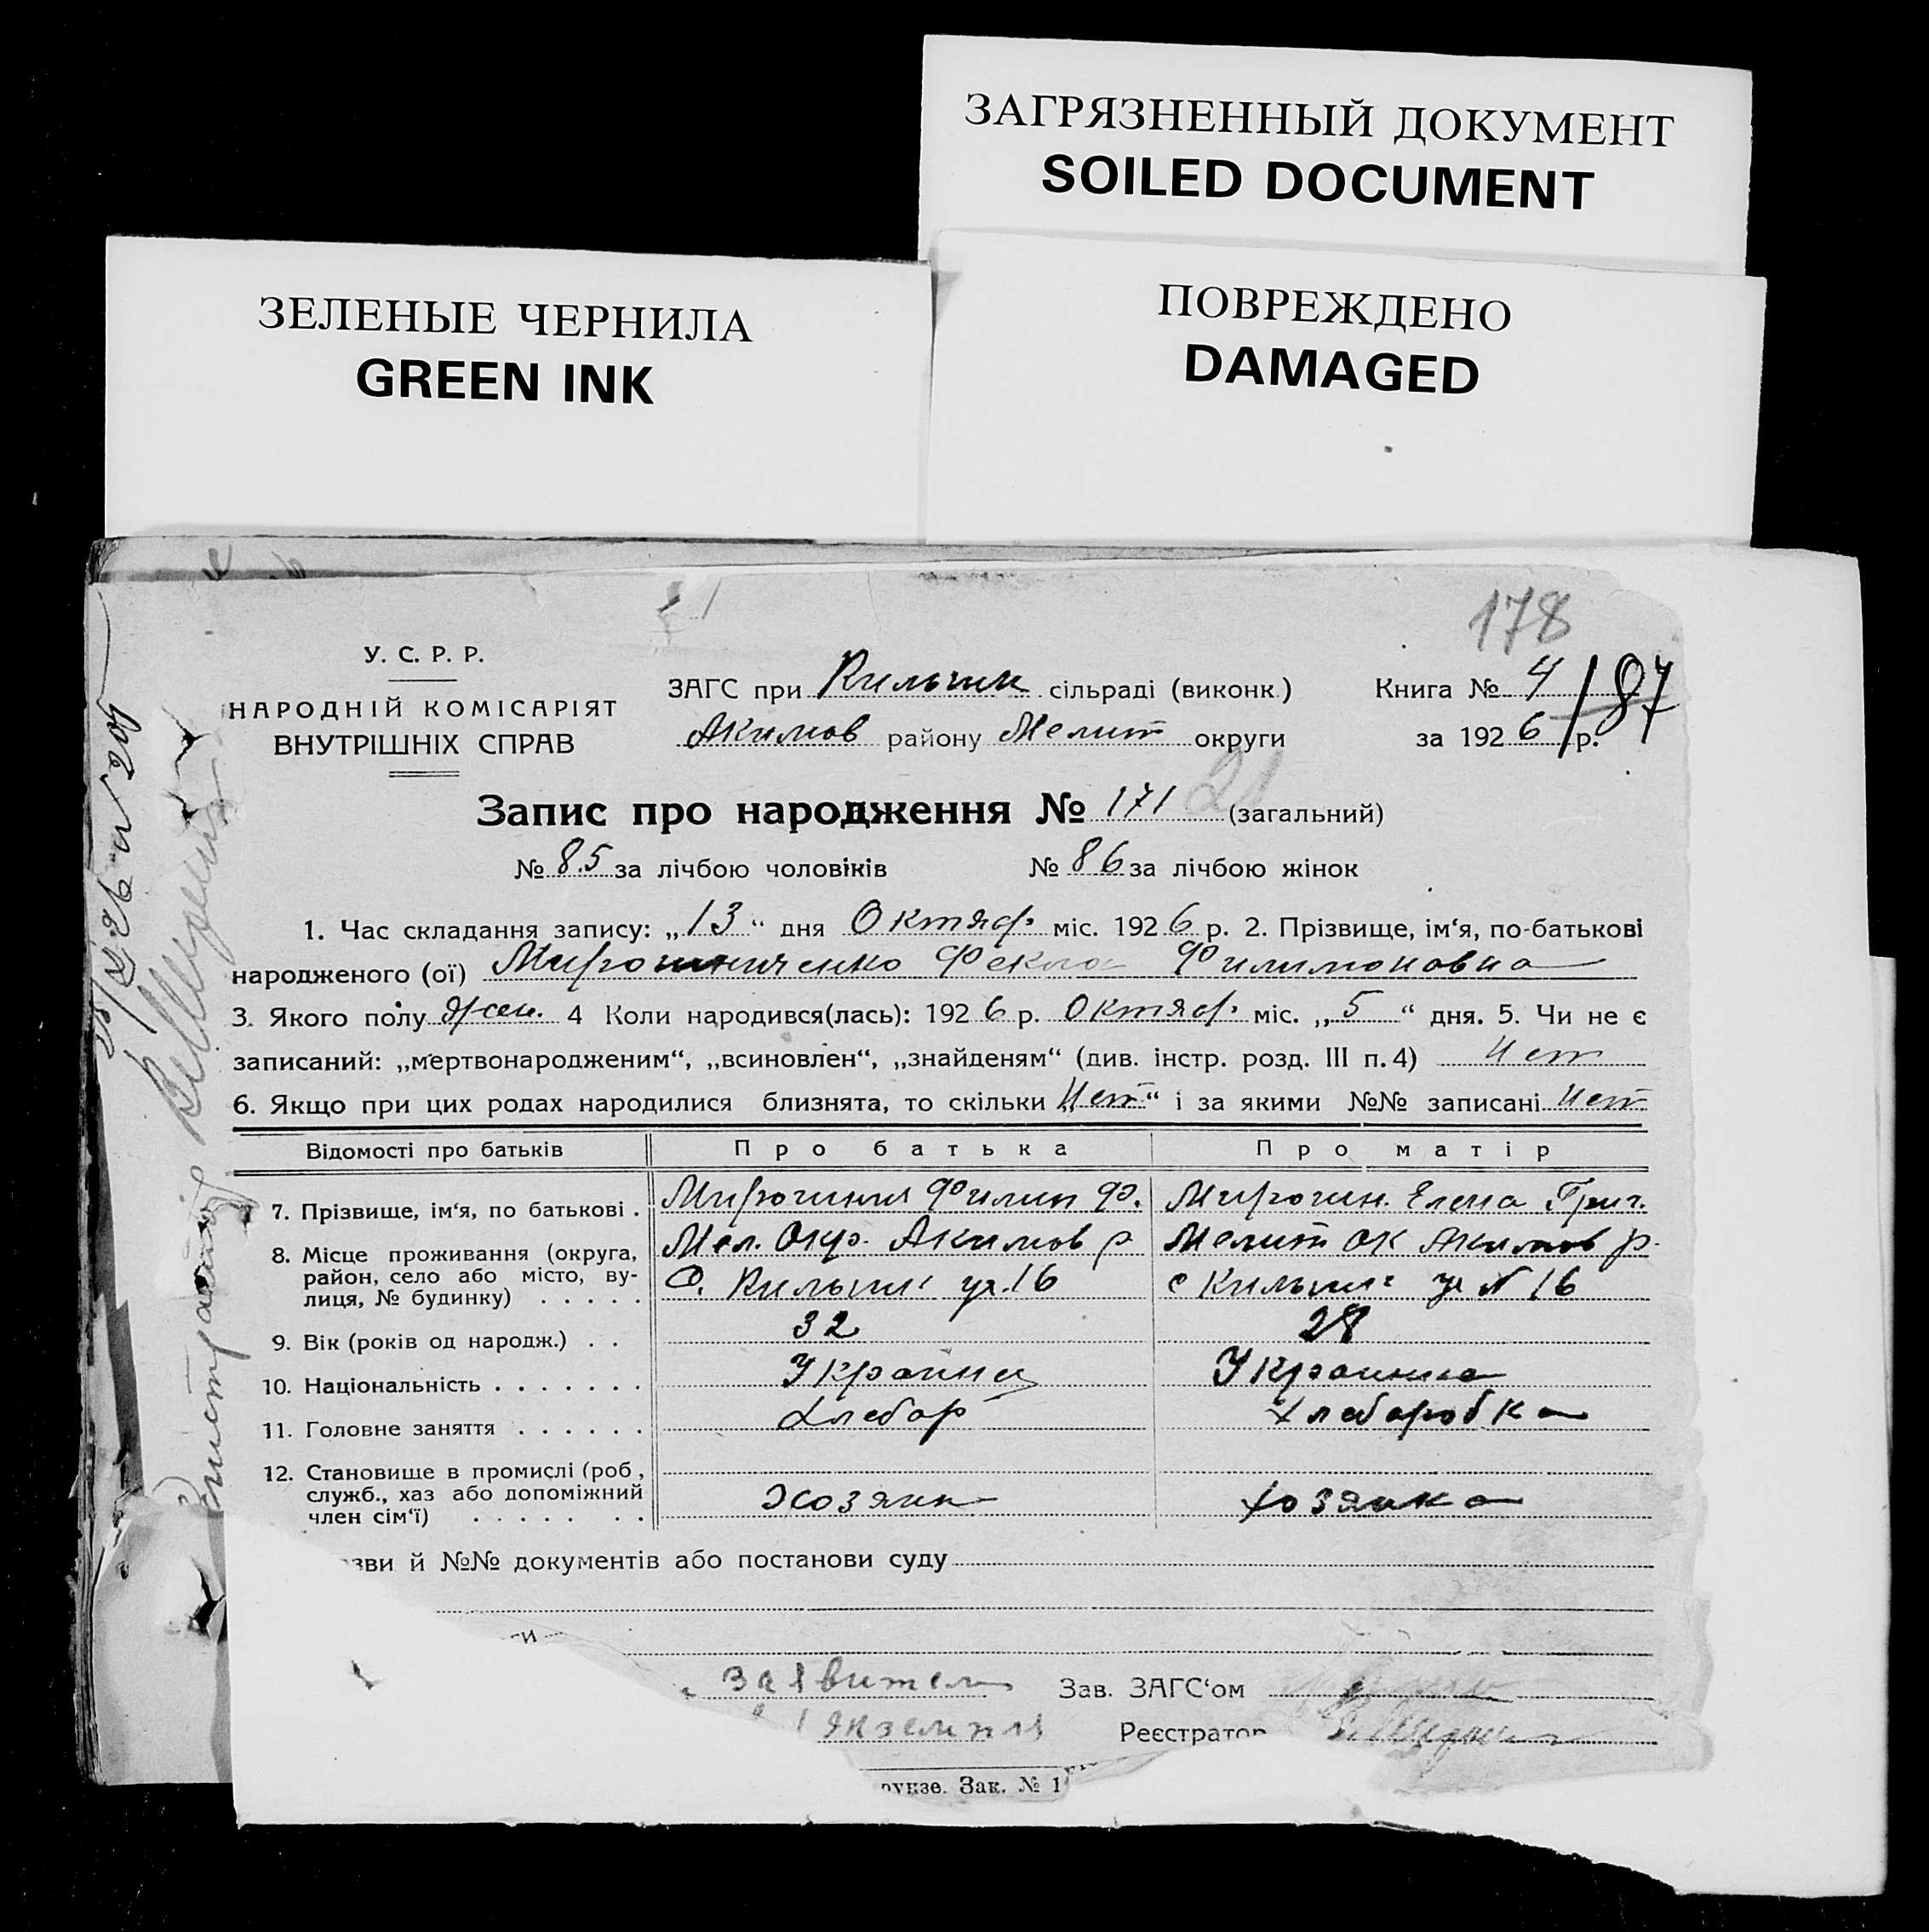 ЗАГРЯЗНЕННЫЙ ДОКУМЕНТ
SOILED DOCUMENT
ЗЕЛЕНЫЕ ЧЕРНИЛА
GREEN INK
ПОВРЕЖДЕНО
DAMAGED
178
У. С. Р. Р.
НАРОДНІЙ КОМІСАРІЯТ
ВНУТРІШНІХ СПРАВ
ЗАГС при Кильчик сільраді (виконк.)
Акимов району Мелит округи
Книга № 4 /87
за 1926 р.
Запис про народження № 171 21 (загальний)
№ 85 за лічбою чоловіків № 86 за лічбою жінок
1. Час складання запису: „13“ дня Октяб. міс. 1926 р. 2. Прізвище, ім‘я, по-батькові
народженого (ої) Мирошниченко Фекла Филимоновна
3. Якого полу жен. 4 Коли народився(лась): 1926 р. Октяб. міс. „5“ дня. 5. Чи не є
записаний: „мертвонародженим“, „всиновлен“, „знайденям“ (див. інстр. розд. III п. 4) Нет
6. Якщо при цих родах народилися близнята, то скільки „Нет“ і за якими №№ записані Нет
Відомості про батьків Про батька Про матір
7. Прізвище, ім‘я, по батькові . Филип Ф. Мирошн. Елена Григ.
8. Місце проживання (округа, Мел. Окр. Акимов р Мелит ок Акимов р.
район, село або місто, ву- С. ул. 16 с ул N 16
лиця, № будинку) . . . . .
9. Вік (років од народж.) . . 32 28
10. Національність . . . . . . . Украинец Украинка
11. Головне заняття . . . . . . Хлебор Хлеборобка
12. Становище в промислі (роб.,
служб., хаз або допоміжний Хозяин Хозяйка
член сім‘ї) . . . . . . .
зви й №№ документів або постанови суду
ти
заявител Зав. ЗАГС‘ом
Реєстратор
рунзе. Зак. № 1